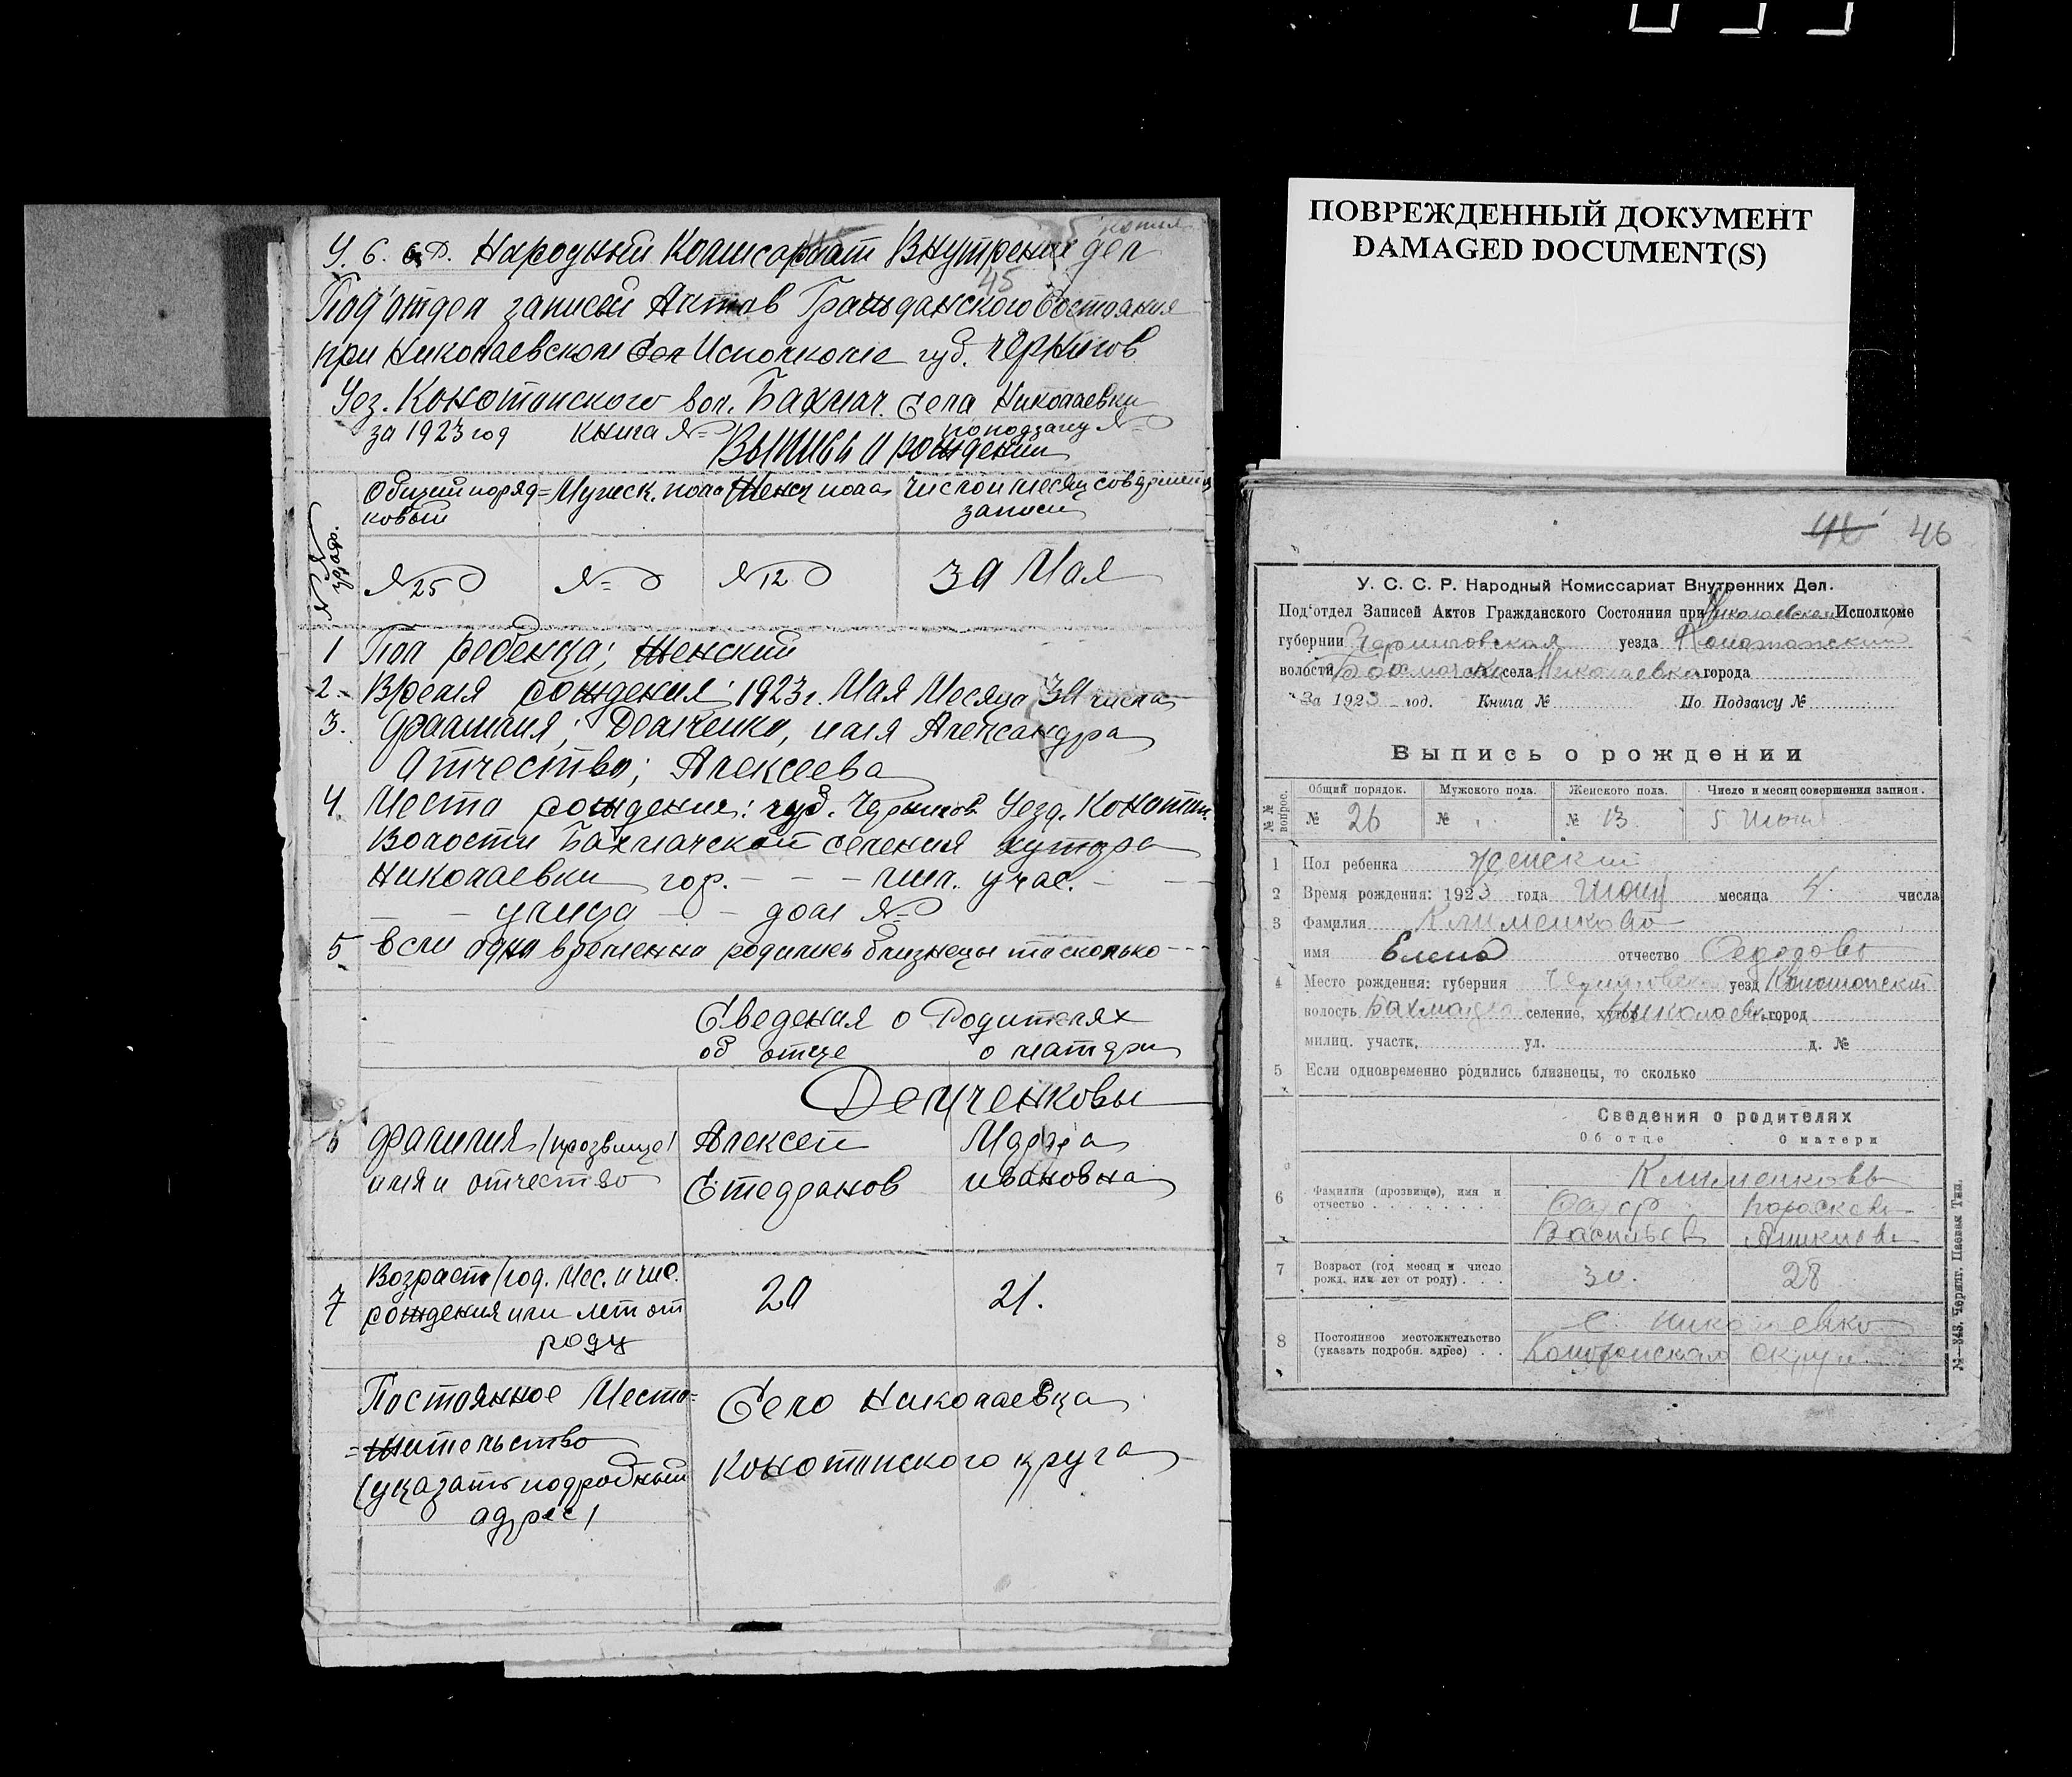 45
Народный Комисариат Внутрених дел
Под'отдел записей Актов Гражданского Состояния
при Николаевском Сел Исполкоме губ. Чернигов
Уез. Конотопского вол. Бахмач. Села Николаевки
за 1923 год Книга № по подзагсу №
Выпись о рождении
Общий поряд=
ковый
Мужеск. пола
Женск пола
Число и месяц совершения
записи
№ 25
№
№ 12
30 Мая
1 Пол ребенка; Женский
2. Время рождения: 1923 г. Мая Месяца 30 числа
3. Фамилия; Демченко, имя Александра
Отчество; Алексеева
4. Места рождения: губ. Чернигов Уезд. Конотоп.
Волости Бахмачской селения хутора
Николаевки гор. - - - мил. учас. -
- - улица - - дом №
5 Если одно временна родились близнецы то сколько - - -
Сведения о Родителях
об отце о матери
Демченковы
6 Фамилия (прозвище)
имя и отчество
Алексей
Стефанов
Марфа
Ивановна
7 Возраст (год. Мес. и чис.
рождения или лет от
роду
20
21.
Постоянное Место=
=жительство
(указать подробный
адрес)
Село Николаевка
Конотопского круга
ПОВРЕЖДЕННЫЙ ДОКУМЕНТ
DAMAGED DOCUMENT(S)
46
У. С. С. Р. Народный Комиссариат Внутренних Дел.
Под'отдел Записей Актов Гражданского Состояния при Николаевском Исполкоме
губернии Черниговская уезда Конотопский
волости Бахмачска села Николаевка города
За 1923 год. Книга № По Подзагсу №
Выпись о рождении
№ № вопрос.
Общий порядк.
Мужского пола.
Женского пола.
Число и месяц совершения записи.
№ 26
№
№ 13
5 Июня
1 Пол ребенка женский
2 Время рождения: 1923 года Июня месяца 4 числа
3 Фамилия Клименкова
имя Елена отчество Федорова
4 Место рождения: губерния Черниговска уезд Конотопский
волость Бахмацка селение, хутор Николаевка город
милиц. участк. ул. д. №
5 Если одновременно родились близнецы, то сколько
Сведения о родителях
Об отце О матери
6 Фамилия (прозвище), имя и
отчество
Клименковы
Васильев
Параскева
7 Возраст (год месяц и число
рожд. или лет от роду)
30.
28
8 Постоянное местожительство
(указать подробн. адрес)
с. Николаевка
Конотопская округа
№—343. Черниг. Цневая Тип.